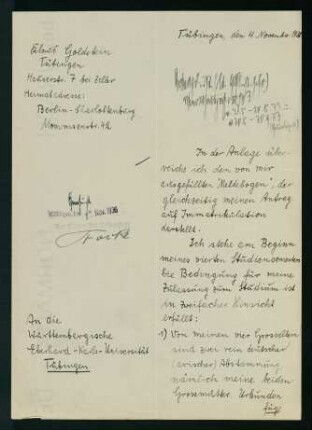 Goldstein
Tübingen
Heimatadresse:
Berlin-Charlottenburg
An die
Württembergische
Eberhard-Karls-Universität
Tübingen
Tübingen, den 4. November
In der Anlage über-
reiche ich den von mir
ausgefüllten "Meldebogen", der
gleichzeitig meinen Antrag
auf Immatrikulation
darstellt.
Ich stehe am Beginn
meines vierten Studiensemesters
Die Bedingung für meine
Zulassung zum Studium ist
in zweifacher Hinsicht
erfüllt:
1) Von meinen vier Grosseltern
sind zwei rein deutscher
(arischer) Abstammung
nämlich meine beiden
Grossmütter. Urkunden